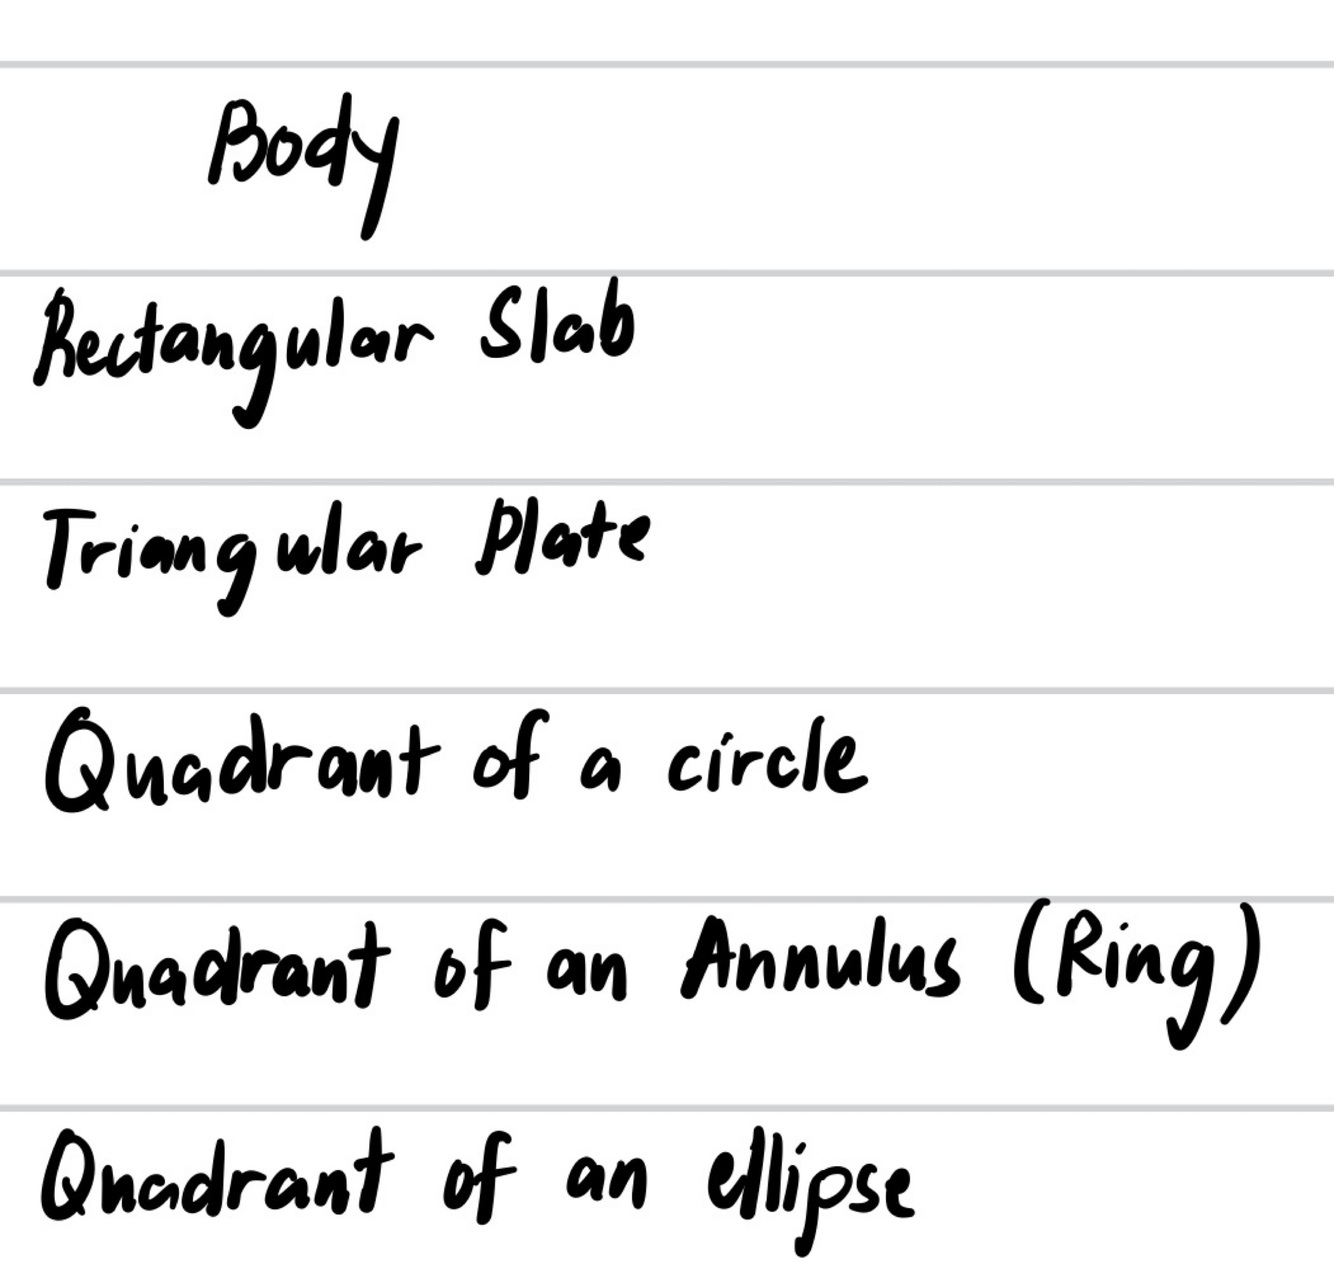 Body
Rectangular Slab
Triangular Plate
Quadrant of a circle
Quadrant of an Annulus (Ring)
Quadrant of an ellipse